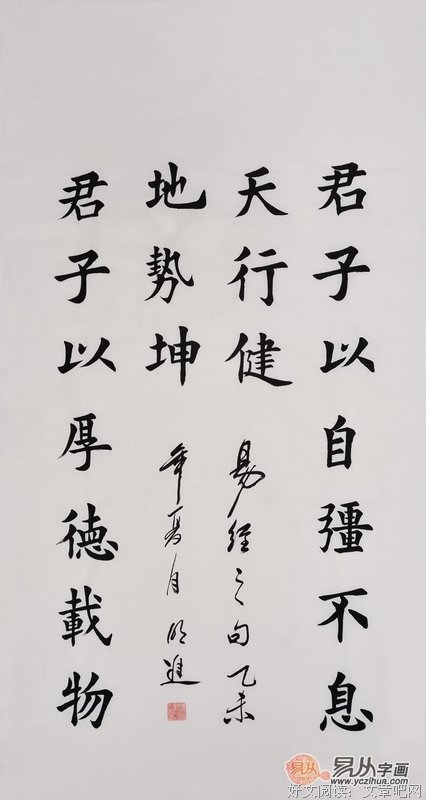 君子以自彊不息
天行健
易經之句乙未
地勢坤
年夏月明進
君子以厚德載物
易从字画
www.yczihua.com
好文阅读：文章吧网